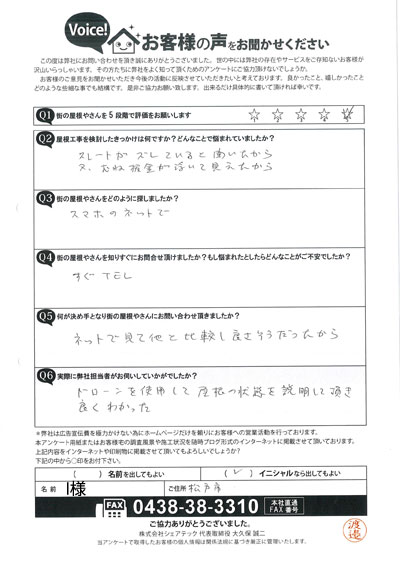 Voice!
お客様の声をお聞かせください
この度は弊社にお問い合わせを頂き誠にありがとうございました。世の中には弊社の存在やサービスをご存知ないお客様が
沢山いらっしゃいます。その方たちに弊社をよく知って頂くためのアンケートにご協力頂けないでしょうか。
お客様のご意見をお聞かせいただき今後の活動に反映させていただきたいと考えております。良かったこと、嬉しかったこと
どのような些細な事でも結構です。是非ご協力お願い致します。出来るだけ具体的に書いて頂ければ幸いです。
Q1 街の屋根やさんを5段階で評価をお願いします ☆ ☆ ☆ ☆ ☆
Q2 屋根工事を検討したきっかけは何ですか?どんなことで悩まれていましたか?
スレートがズレていると聞いたから
又、むね板金が浮いて見えたから
Q3 街の屋根やさんをどのように探しましたか?
スマホのネットで
Q4 街の屋根やさんを知りすぐにお問合せ頂けましたか?もし悩まれたとしたらどんなことがご不安でしたか?
すぐTEL
Q5 何が決め手となり街の屋根やさんにお問い合わせ頂きましたか?
ネットで見て他と比較し良さそうだったから
Q6 実際に弊社担当者がお伺いしていかがでしたか?
ドローンを使用して屋根の状態を説明して頂き
良くわかった
※弊社は広告宣伝費を極力かけない為にホームページだけを頼りにお客様への営業活動を行っております。
本アンケート用紙またはお客様宅の調査風景や施工状況を随時ブログ形式のインターネットに掲載させて頂いております。
上記内容をインターネットや印刷物に掲載させて頂いてもよろしいでしょうか?
下記の中から○印をお付下さい。
( ) 名前を出してもよい ( ✓ ) イニシャルなら出してもよい
名前 I様 ご住所 松戸市
FAX 0438-38-3310 本社直通 FAX番号
ご協力ありがとうございました。
株式会社シェアテック 代表取締役 大久保 誠二
当アンケートで取得したお客様の個人情報は関係法規に基づき厳正に管理いたします。
渡邉